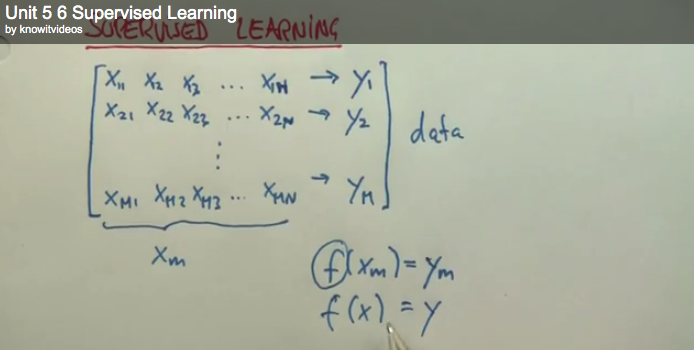 Unit 5 6 Supervised Learning
by knowitvideos
SUPERVISED LEARNING
X11 X2 X3 ... X1N → Y1
X21 X22 X23 ... X2N → Y2
⋮
XM1 XM2 XM3 ... XMN → YM
data
Xm
f(xm) = ym
f(x) = y